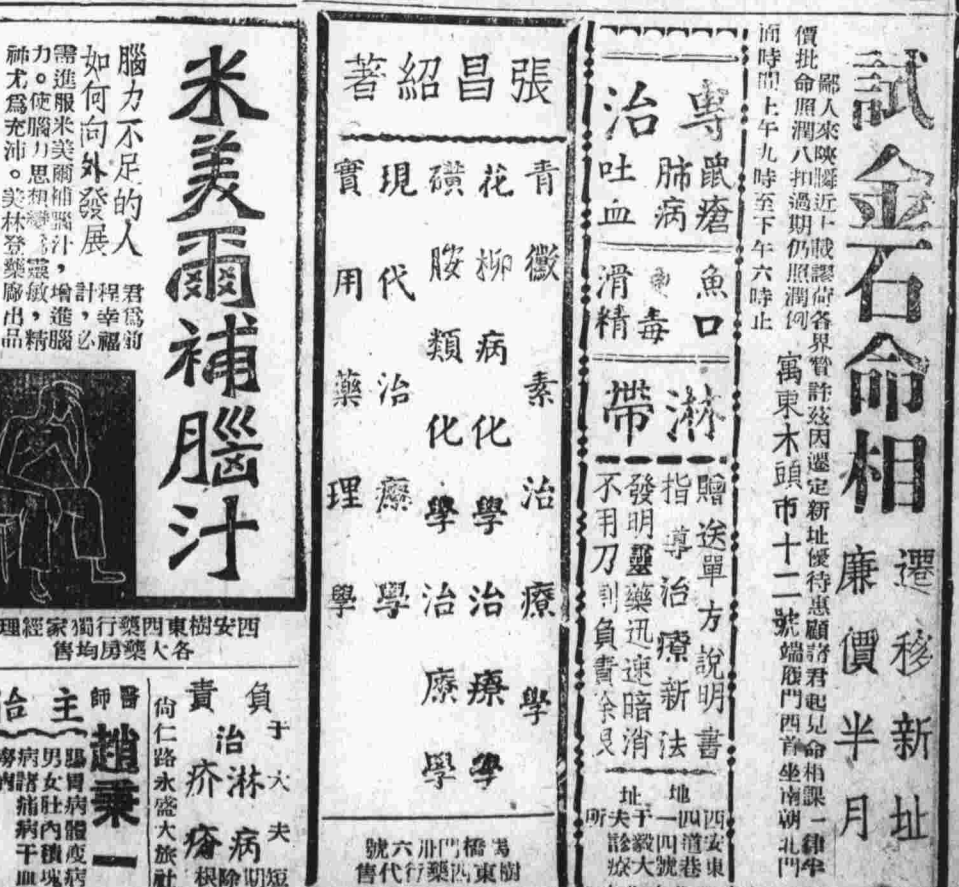 試金石命相
遷移新址
廉價半月
鄙人來陝瞬近十載謬荷各界贊許茲因遷定新址優待惠顧諸君起見命相課一律半
價批命照潤八扣過期仍照潤例
面時間上午九時至下午六時止
寓東木頭市十二號端履門西首坐南朝北門
專治
鼠瘡
肺病
吐血
魚口
毒
滑精
淋
帶
贈送單方說明書
指導治療新法
發明靈藥迅速暗消
不用刀割負責除根
地址
西安東
四道巷
一四號
于毅大
夫診療
所
張昌紹著
青黴素治療學
花柳病化學治療學
磺胺類化學治療學
現代治療學
實用藥理學
橋門卅六號
樹東西藥行代售
米美爾補腦汁
腦力不足的人
如何向外發展
君爲前
程幸福
計，必
需進服米美爾補腦汁，增進腦
力。使腦力思想變爲靈敏，精
神尤爲充沛。美林登藥廠出品
西安樹東西藥行獨家經理
各大藥房均售
于大夫短
負責
治淋病
疥瘡
期
除
根
尚仁路永盛大旅社
醫師
趙秉一
主治
腸胃病體瘦病
男女肚內積塊
病諸痛病干血
癆病